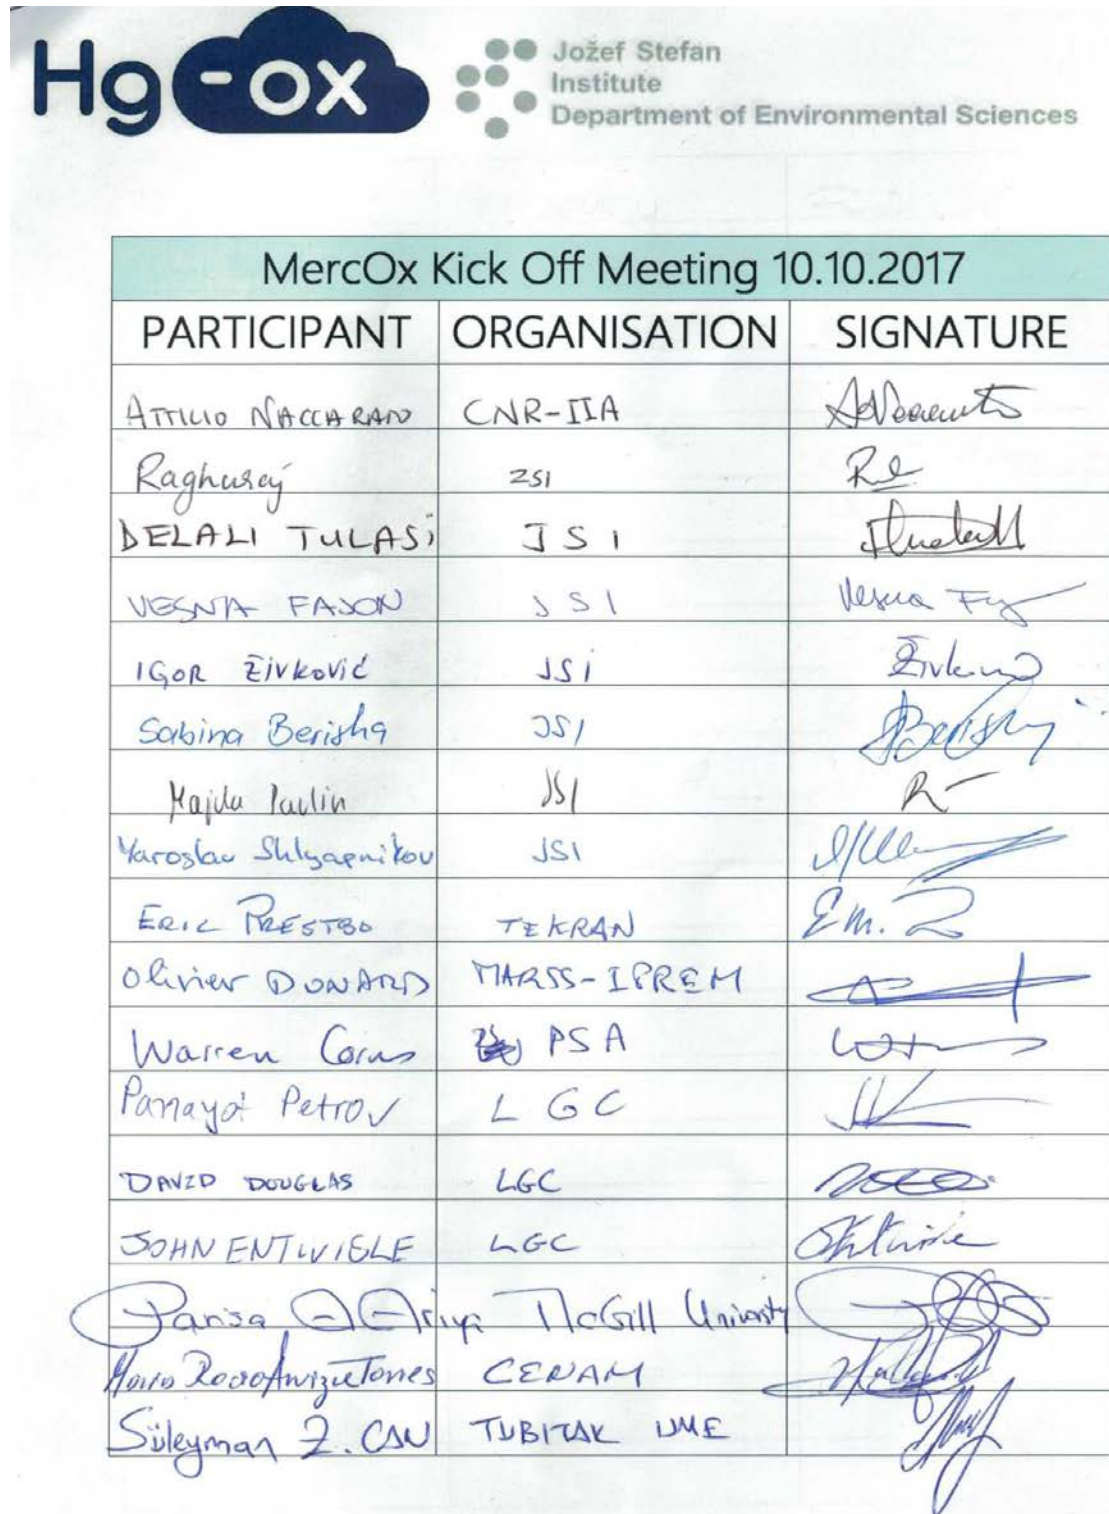 Hg-ox
Jožef Stefan
Institute
Department of Environmental Sciences
MercOx Kick Off Meeting 10.10.2017
PARTICIPANT ORGANISATION SIGNATURE
ATTILIO NACCARATO CNR-IIA
Raghuraj ZSI
DELALI TULASI JSI
VESNA FAJON JSI Vesna
IGOR ŽIVKOVIĆ JSI
Sabina Berisha JSI Berisha
Majda Pavlin JSI
Yaroslav Shlyapnikov JSI
ERIC PRESTBO TEKRAN
Olivier DONARD MARSS-IPREM
Warren Corns PSA
Panayot Petrov LGC
DAVID DOUGLAS LGC
JOHN ENTWISLE LGC
Parisa A Ariya McGill University
CENAM
Süleyman Z. CAN TUBITAK UME